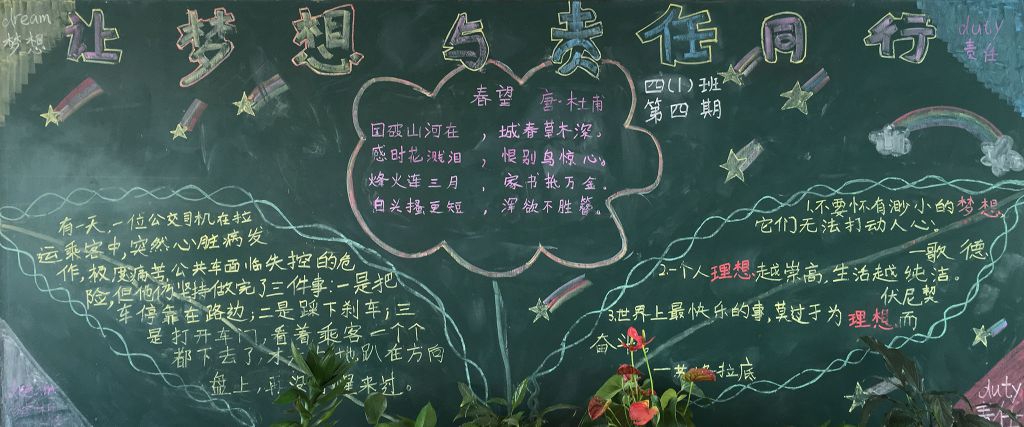 dream
梦想
让梦想与责任同行
duty
责任
四(1)班
第四期
春望 唐·杜甫
国破山河在，城春草木深。
感时花溅泪，恨别鸟惊心。
烽火连三月，家书抵万金。
白头搔更短，浑欲不胜簪。
有一天，一位公交司机在拉
运乘客中，突然心脏病发
作，极度痛苦公共车面临失控的危
险，但他仍坚持做完了三件事：一是把
车停靠在路边；二是踩下刹车；三
是打开车门，看着乘客一个个
都下去了，才 地趴在方向
盘上，再没 醒来过。
1.不要怀有渺小的梦想，
它们无法打动人心。
—歌德
2.一个人理想越崇高，生活越纯洁。
伏尼契
3.世界上最快乐的事，莫过于为理想而
奋
拉底
duty